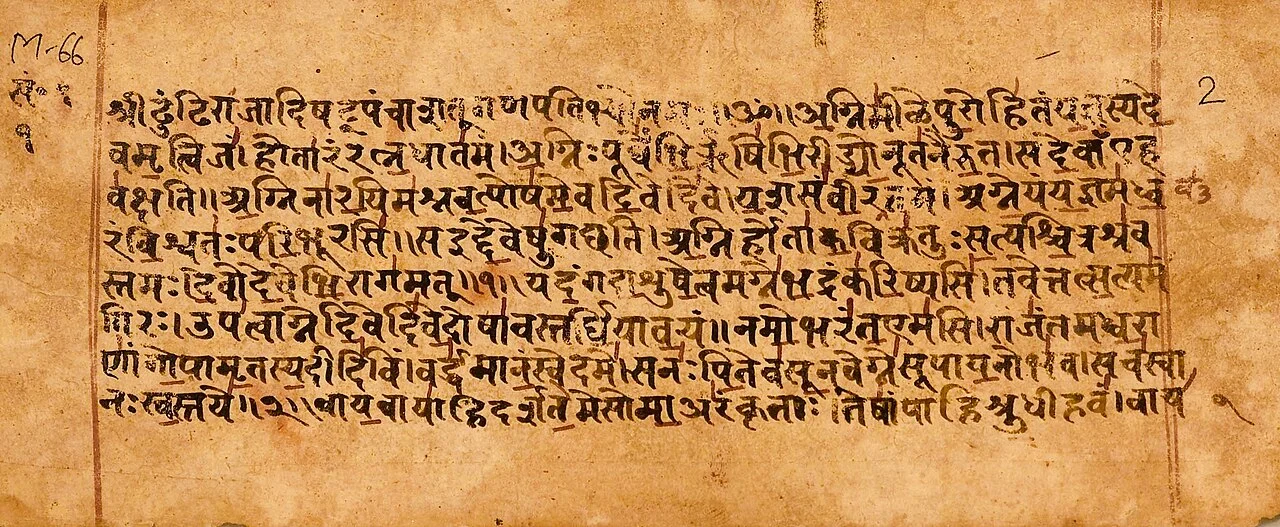 M-66
सं० १
१
2
श्रीढुंढिराजादिषट्पंचाशत् गणपतिभ्यो नमः ॥ॐ॥ अग्निमीळेपुरोहितंयज्ञस्यदे
वमृत्विजं।होतारंरत्नधातमं।अग्निःपूर्वेभिर्ऋषिभिरीड्योनूतनैरुत।सदेवाँएह
वक्षति॥अग्निनारयिमश्नवत्पोषमेवदिवेदिवे।यशसंवीरवत्तमं।अग्नेयंयज्ञमध्व
रंविश्वतःपरिभूरसि॥सइद्देवेषुगछति।अग्निर्होताकविक्रतुःसत्यश्चित्रश्रव
स्तमः।देवोदेवेभिरागमत्॥१॥यदंगदाशुषेत्वमग्नेभद्रंकरिष्यसि।तवेत्तत्सत्यमं
गिरः।उपत्वाग्नेदिवेदिवेदोषावस्तर्धियावयं॥नमोभरंतएमसि।राजंतमध्वरा
णांगोपामृतस्यदीदिविं।वर्द्धमानंस्वेदमे।सनःपितेवसूनवेग्नेसूपायनोभव।सचस्वा
नःस्वस्तये॥२॥वायवायाहिदर्शतेमेसोमाअरंकृताः।तेषांपाहिश्रुधीहवं।वाय
१